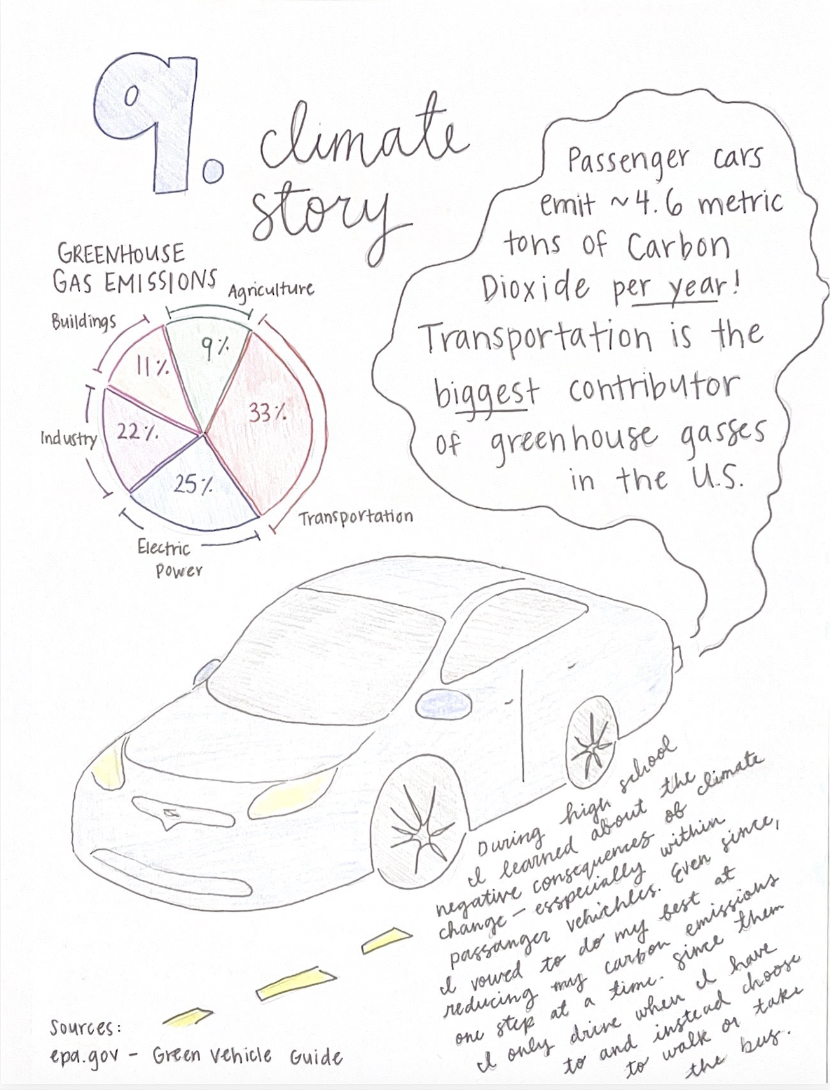 9. climate
story
GREENHOUSE
GAS EMISSIONS
Agriculture
Buildings
9%
11%
33%
Industry
22%
25%
Transportation
Electric
Power
Passenger cars
emit ~4.6 metric
tons of Carbon
Dioxide per year!
Transportation is the
biggest contributor
of greenhouse gasses
in the U.S.
During high school
I learned about the
negative consequences of climate
change - esspecially within
passanger vehichles. Even since,
I vowed to do my best at
reducing my carbon emissions
one step at a time. Since them
I only drive when I have
to and instead choose
to walk or take
the bus.
Sources:
epa.gov - Green Vehicle Guide